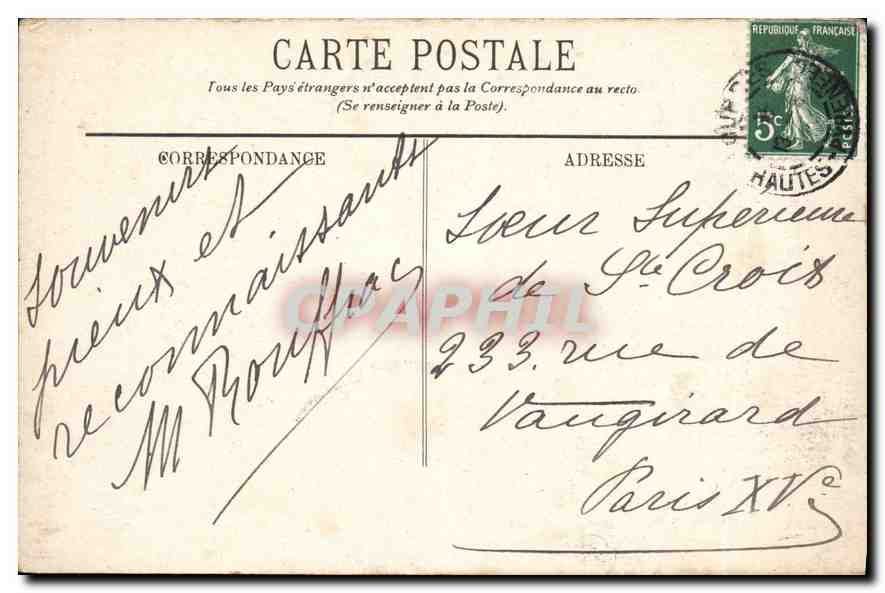 CARTE POSTALE
Tous les Pays étrangers n'acceptent pas la Correspondance au recto
(Se renseigner à la Poste).
REPUBLIQUE FRANÇAISE
5c
POSTES
HAUTES
CORRESPONDANCE
Souvenirs
pieux et
reconnaissants
M Rouffiac
ADRESSE
Sœur Superieure
de Ste Croix
233. rue de
Vaugirard
Paris XVe
CPAPHIL